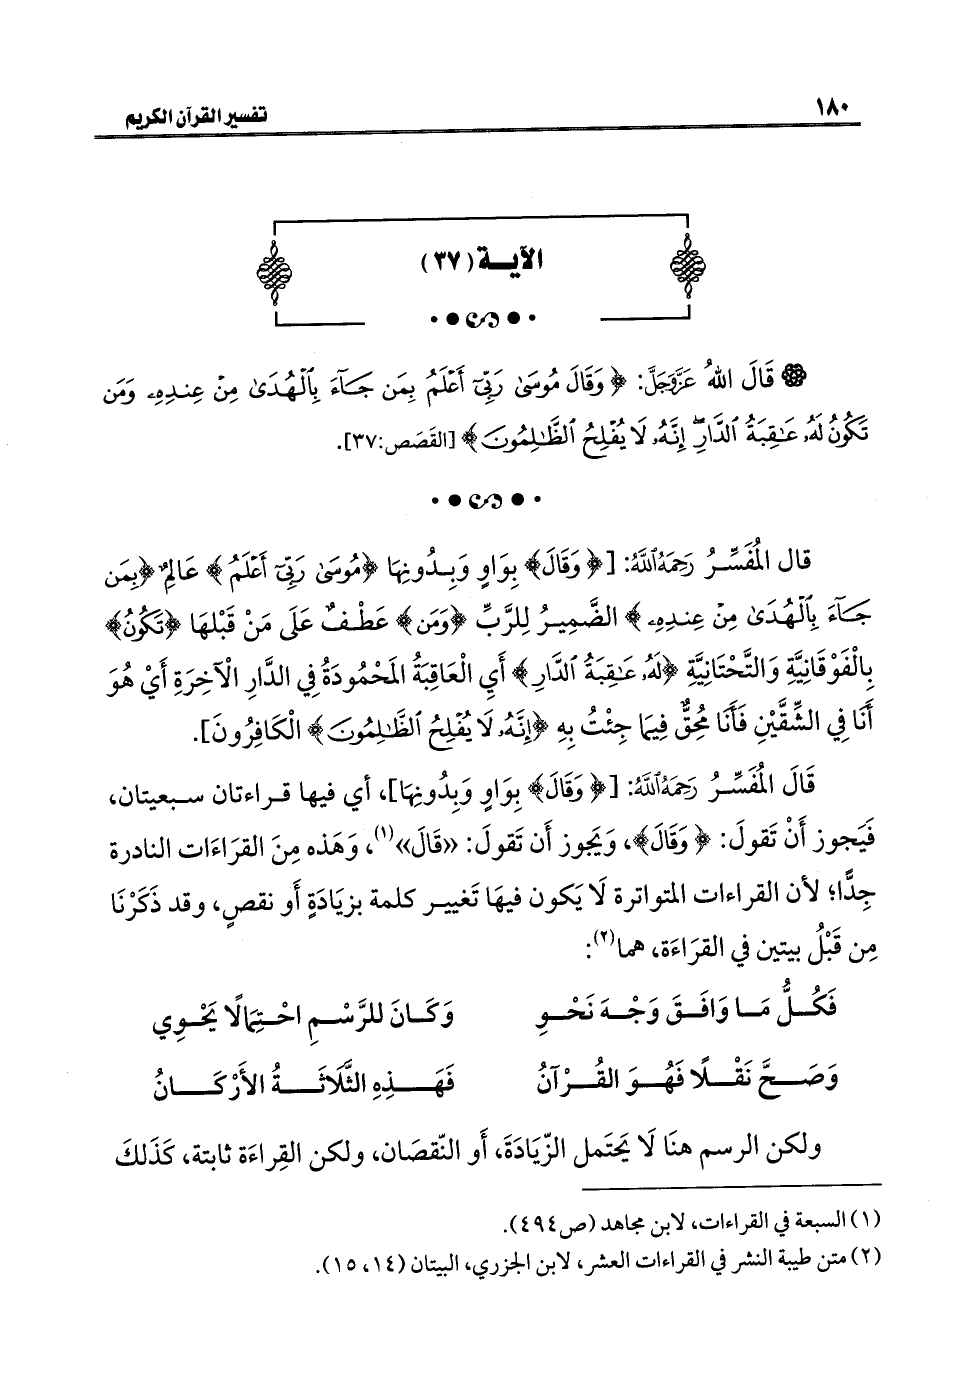 ١٨٠
تفسير القرآن الكريم
الآيـــة (٣٧)
قَالَ اللهُ عَزَّوَجَلَّ: ﴿ وَقَالَ مُوسَىٰ رَبِّىٓ أَعْلَمُ بِمَن جَآءَ بِٱلْهُدَىٰ مِنْ عِندِهِۦ وَمَن
تَكُونُ لَهُۥ عَـٰقِبَةُ ٱلدَّارِ ۖ إِنَّهُۥ لَا يُفْلِحُ ٱلظَّـٰلِمُونَ ﴾ [القَصَص:٣٧].
قال المُفَسِّرُ رَحِمَهُ اللَّهُ: [﴿ وَقَالَ﴾ بِوَاوٍ وَبِدُونِهَا ﴿مُوسَىٰ رَبِّىٓ أَعْلَمُ ﴾ عَالِمٌ ﴿بِمَن
جَآءَ بِٱلْهُدَىٰ مِنْ عِندِهِۦ ﴾ الضَّمِيرُ لِلرَّبِّ ﴿وَمَن﴾ عَطْفٌ عَلَى مَنْ قَبْلَهَا ﴿تَكُونُ﴾
بِالْفَوْقَانِيَّةِ وَالتَّحْتَانِيَّةِ ﴿لَهُۥ عَـٰقِبَةُ ٱلدَّارِ ﴾ أَيِ الْعَاقِبَةُ المَحْمُودَةُ فِي الدَّارِ الْآخِرَةِ أَيْ هُوَ
أَنَا فِي الشِّقَّيْنِ فَأَنَا مُحِقٌّ فِيمَا جِئْتُ بِهِ ﴿إِنَّهُۥ لَا يُفْلِحُ ٱلظَّـٰلِمُونَ﴾ الْكَافِرُونَ].
قَالَ المُفَسِّرُ رَحِمَهُ اللَّهُ: [﴿ وَقَالَ﴾ بِوَاوٍ وَبِدُونِهَا]، أي فيها قراءتان سبعيتان،
فَيَجوز أَنْ تَقولَ: ﴿ وَقَالَ﴾، وَيَجوز أَن تَقولَ: «قَالَ»(١)، وَهَذه مِنَ القرَاءَات النادرة
جِدًّا؛ لأن القراءات المتواترة لَا يَكون فيهَا تَغيير كلمة بزيَادَةٍ أَو نقصٍ، وقد ذَكَرْنَا
مِن قَبْلُ بيتين في القرَاءَة، هما(٢):
فَكُلُّ مَا وَافَقَ وَجْهَ نَحْوِ وَكَانَ للرَّسْمِ احْتِمَالًا يَحْوِي
وَصَحَّ نَقْلًا فَهُوَ القُرْآنُ فَهَذِهِ الثَّلَاثَةُ الأَرْكَانُ
ولكن الرسم هنَا لَا يَحتَمل الزّيَادَةَ، أَو النّقصَان، ولكن القِراءَة ثابتة، كَذَلكَ
(١) السبعة في القراءات، لابن مجاهد (ص٤٩٤).
(٢) متن طيبة النشر في القراءات العشر، لابن الجزري، البيتان (١٤، ١٥).